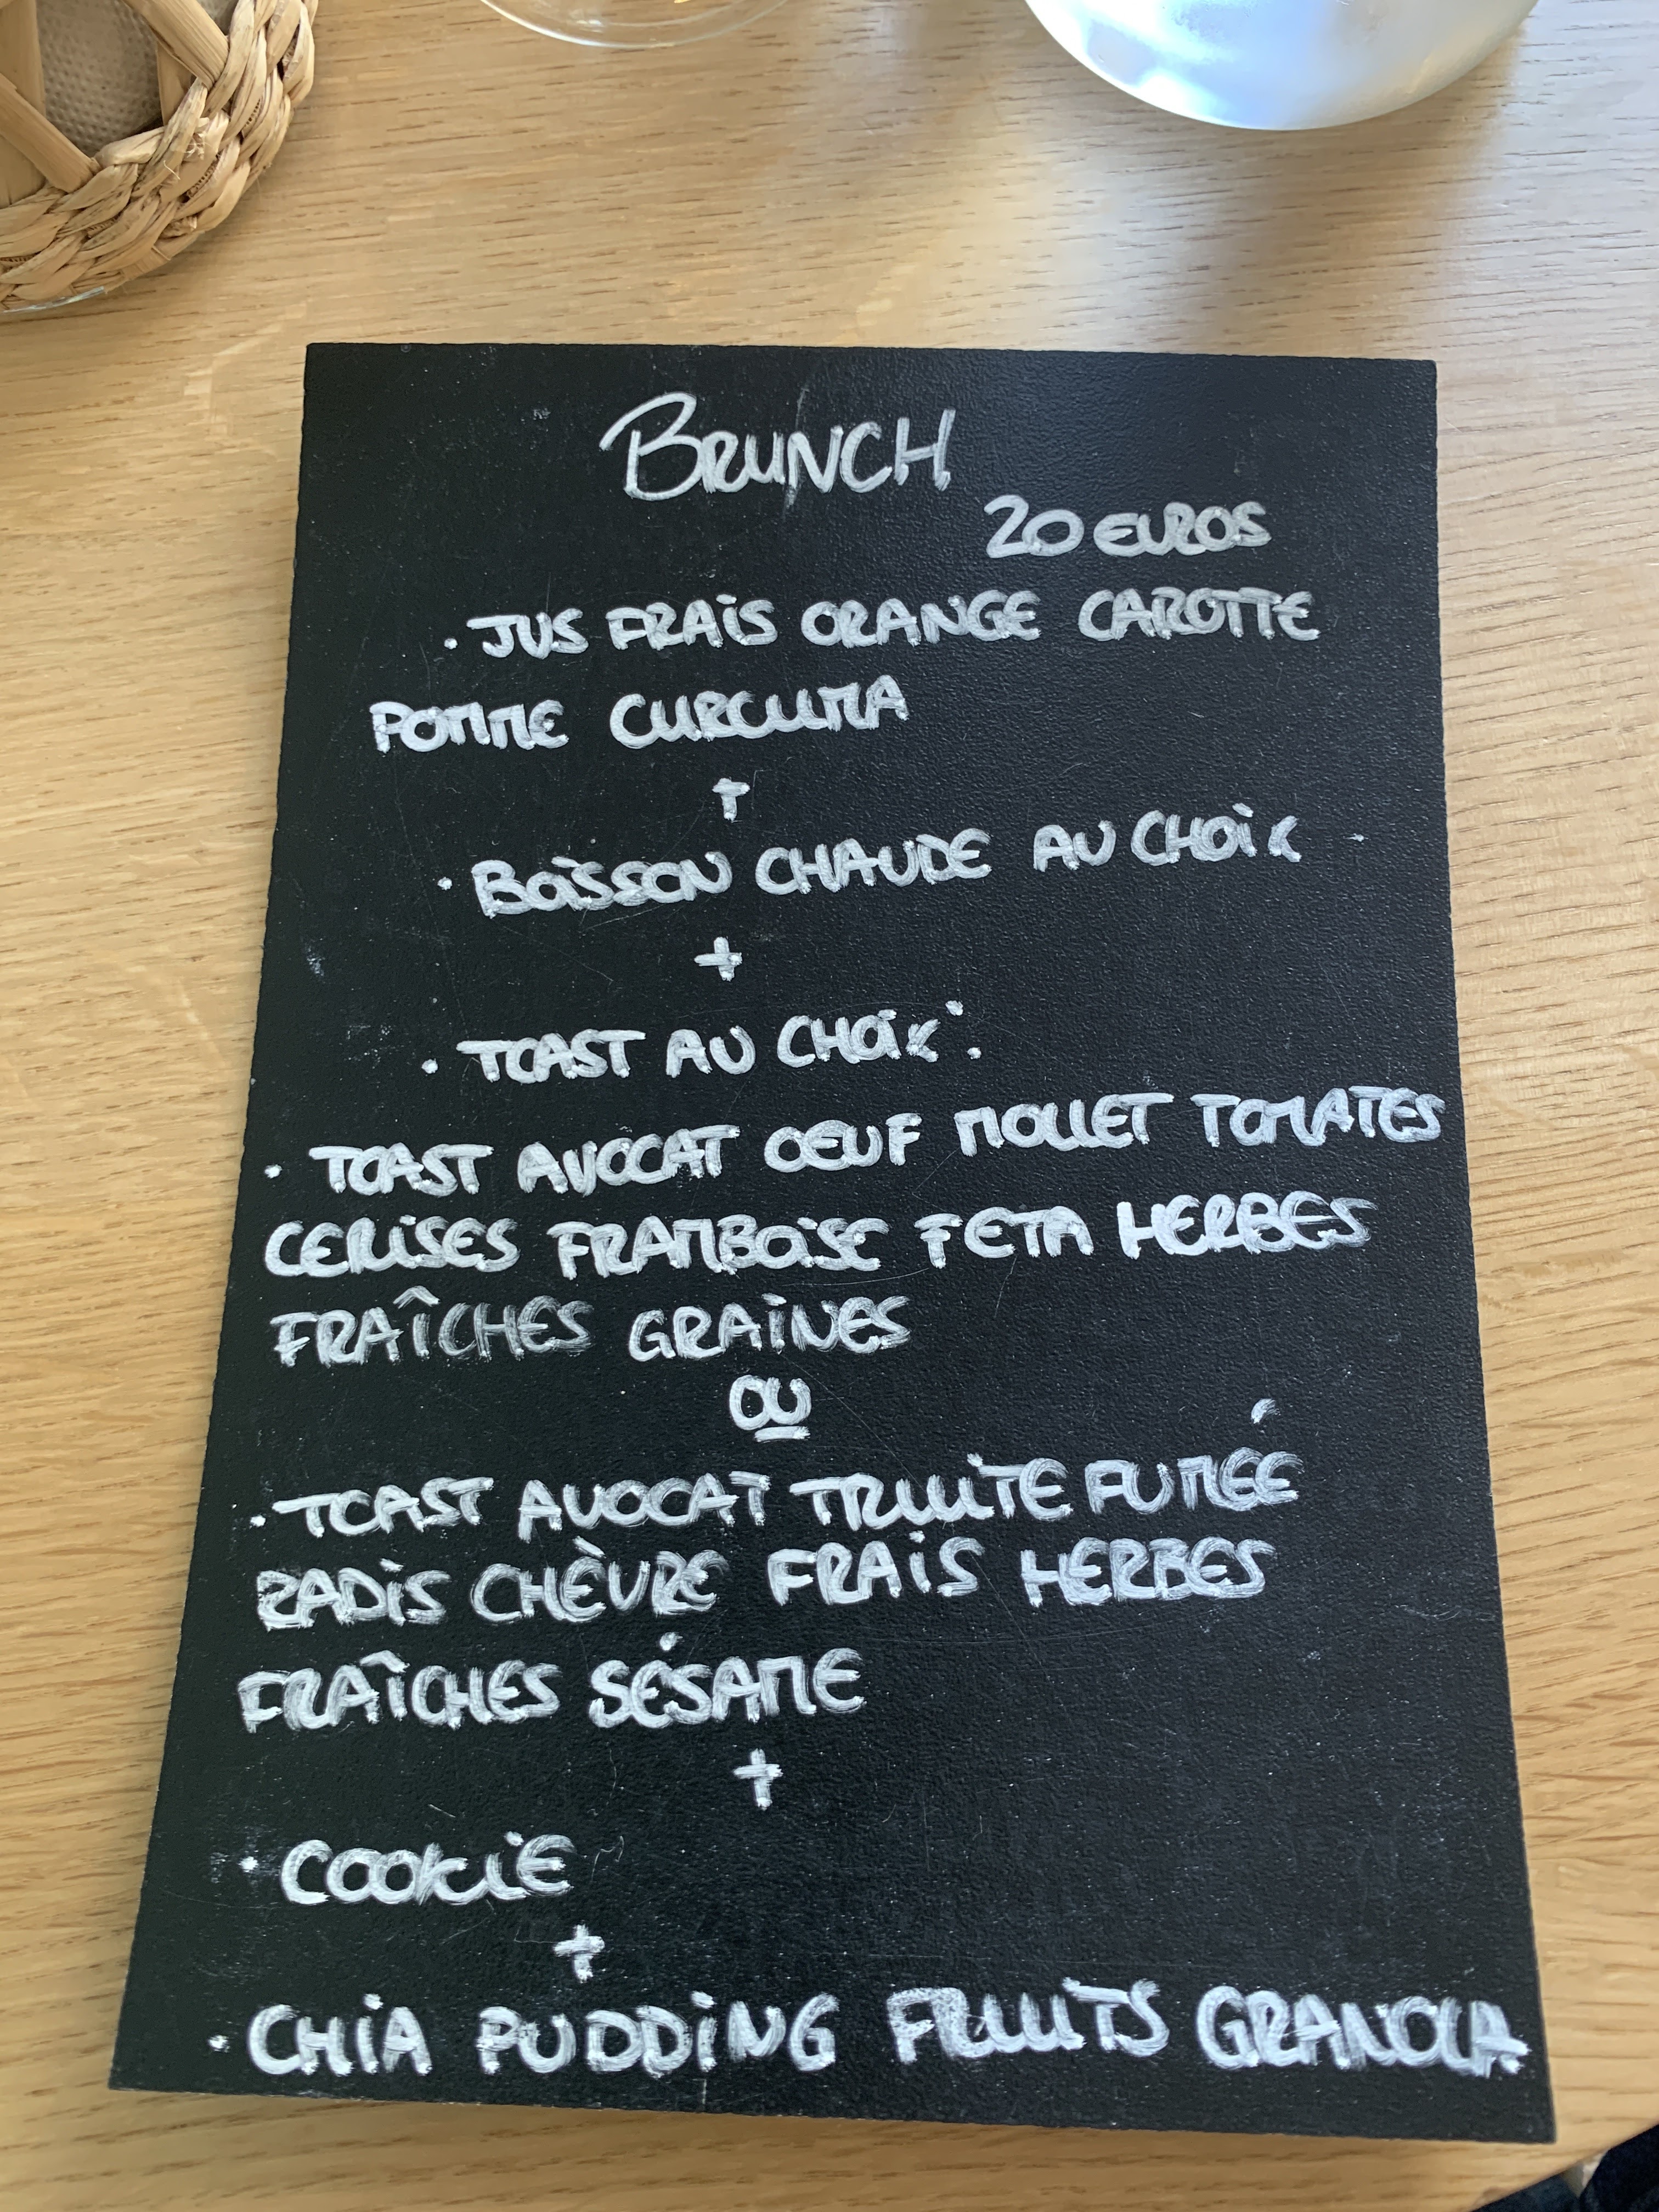 BRUNCH
20 EUROS
· JUS FRAIS ORANGE CAROTTE
POMME CURCUMA
+
· BOISSON CHAUDE AU CHOIX
+
· TOAST AU CHOIX :
· TOAST AVOCAT OEUF MOLLET TOMATES
CERISES FRAMBOISE FETA HERBES
FRAÎCHES GRAINES
OU
· TOAST AVOCAT TRUITE FUMÉE
RADIS CHÈVRE FRAIS HERBES
FRAÎCHES SÉSAME
+
· COOKIE
+
· CHIA PUDDING FRUITS GRANOLA